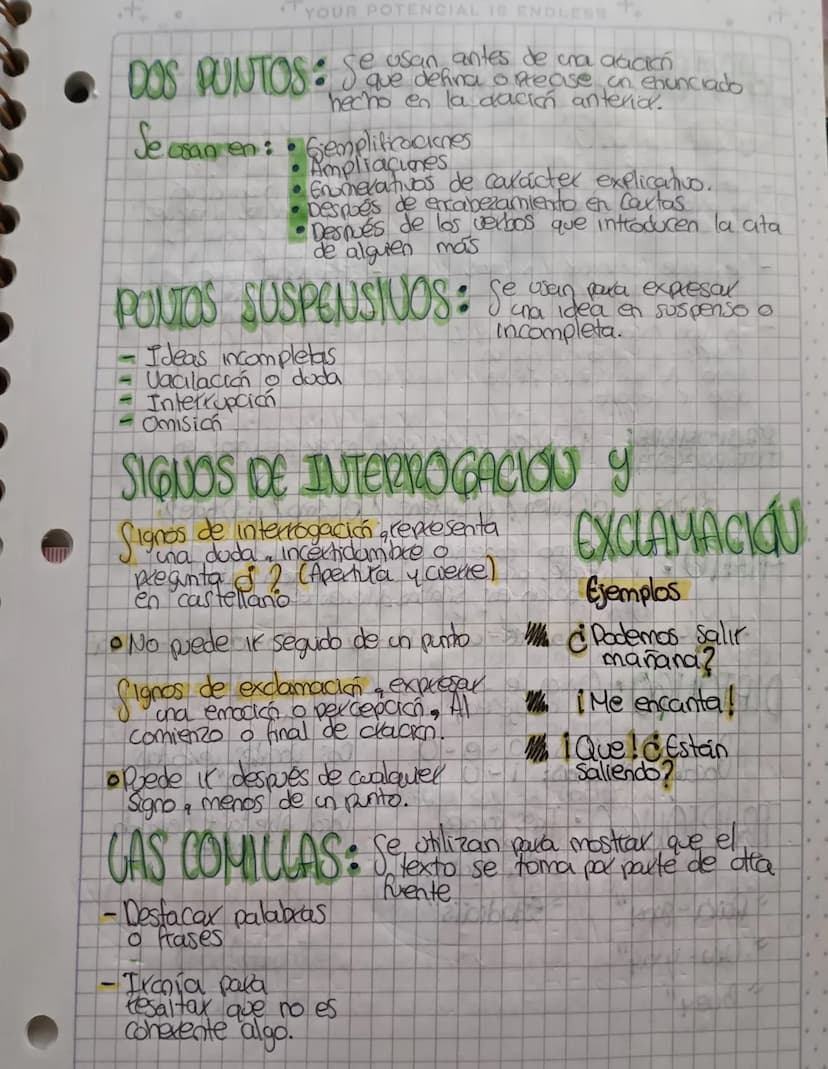 YOUR POTENCIAL IS ENDLESS
DOS PUNTOS: Se usan antes de una oración
que defina o precise un enunciado
hecho en la oración anterior.
Se usan en: • Ejemplificaciones
• Ampliaciones
• Enumerativos de carácter explicativo.
• Después de encabezamiento en Cartas
• Después de los verbos que introducen la cita
de alguien más
PUNTOS SUSPENSIVOS: Se usan para expresar
una idea en suspenso o
incompleta.
- Ideas incompletas
- Vacilación o duda
- Interrupción
- Omisión
SIGNOS DE INTERROGACIÓN y
EXCLAMACIÓN
Signos de interrogación, representa
una duda, incertidumbre o
pregunta ¿ ? (Apertura y cierre)
en castellano
• No puede ir seguido de un punto
Signos de exclamación, expresar
una emoción o percepción, Al
comienzo o final de oración.
• Puede ir después de cualquier
signo, menos de un punto.
Ejemplos
¿Podemos salir
mañana?
¡Me encanta!
¡Que! ¿Están
saliendo?
LAS COMILLAS: Se utilizan para mostrar que el
texto se toma por parte de otra
fuente
- Destacar palabras
o frases
- Ironía para
resaltar que no es
coherente algo.